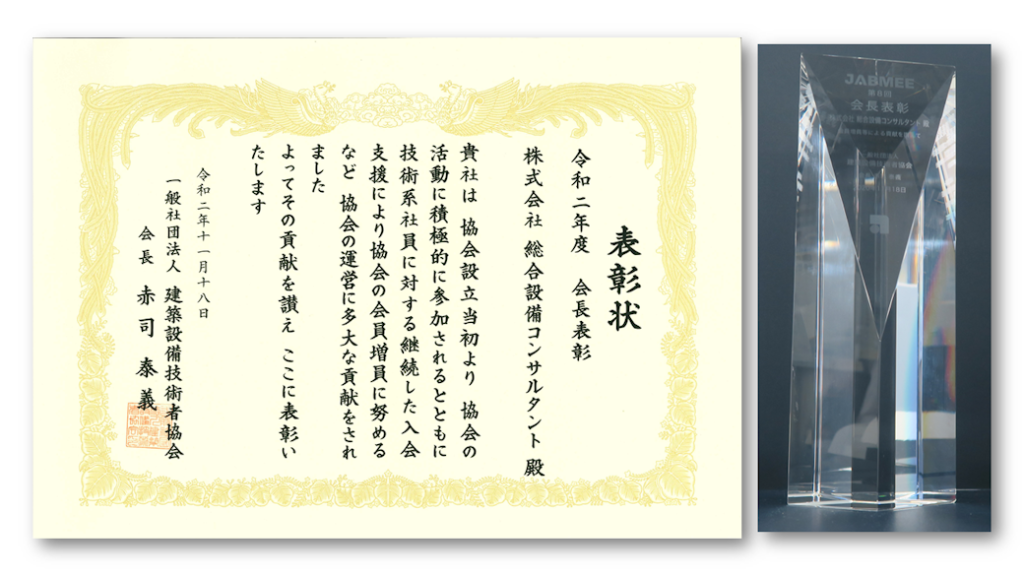 表彰状
令和二年度 会長表彰
株式会社 総合設備コンサルタント 殿
貴社は 協会設立当初より 協会の
活動に積極的に参加されるとともに
技術系社員に対する継続した入会
支援により協会の会員増員に努める
など 協会の運営に多大な貢献をされ
ました
よってその貢献を讃え ここに表彰い
たします
令和二年十一月十八日
一般社団法人 建築設備技術者協会
会長 赤司泰義
JABMEE
第8回
会長表彰
株式会社 総合設備コンサルタント 殿